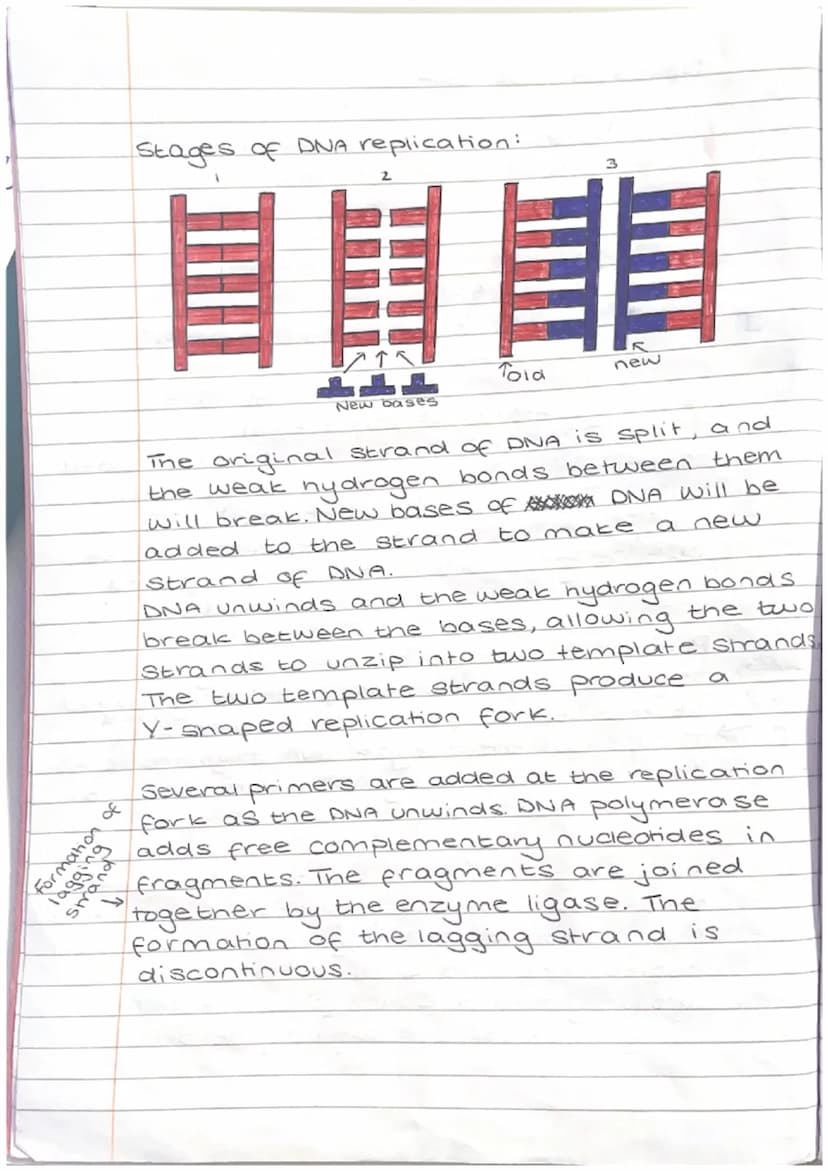 Stages of DNA replication:
1 2 3
New bases
old
new
The original strand of DNA is split, and
the weak hydrogen bonds between them
will break. New bases of DNA will be
added to the strand to make a new
strand of DNA.
DNA unwinds and the weak hydrogen bonds
break between the bases, allowing the two
strands to unzip into two template strands
The two template strands produce a
Y-shaped replication fork.
Several primers are added at the replication
fork as the DNA unwinds. DNA polymerase
adds free complementary nucleotides in
fragments. The fragments are joined
together by the enzyme ligase. The
formation of the lagging strand is
discontinuous.
Formation of
lagging
strand